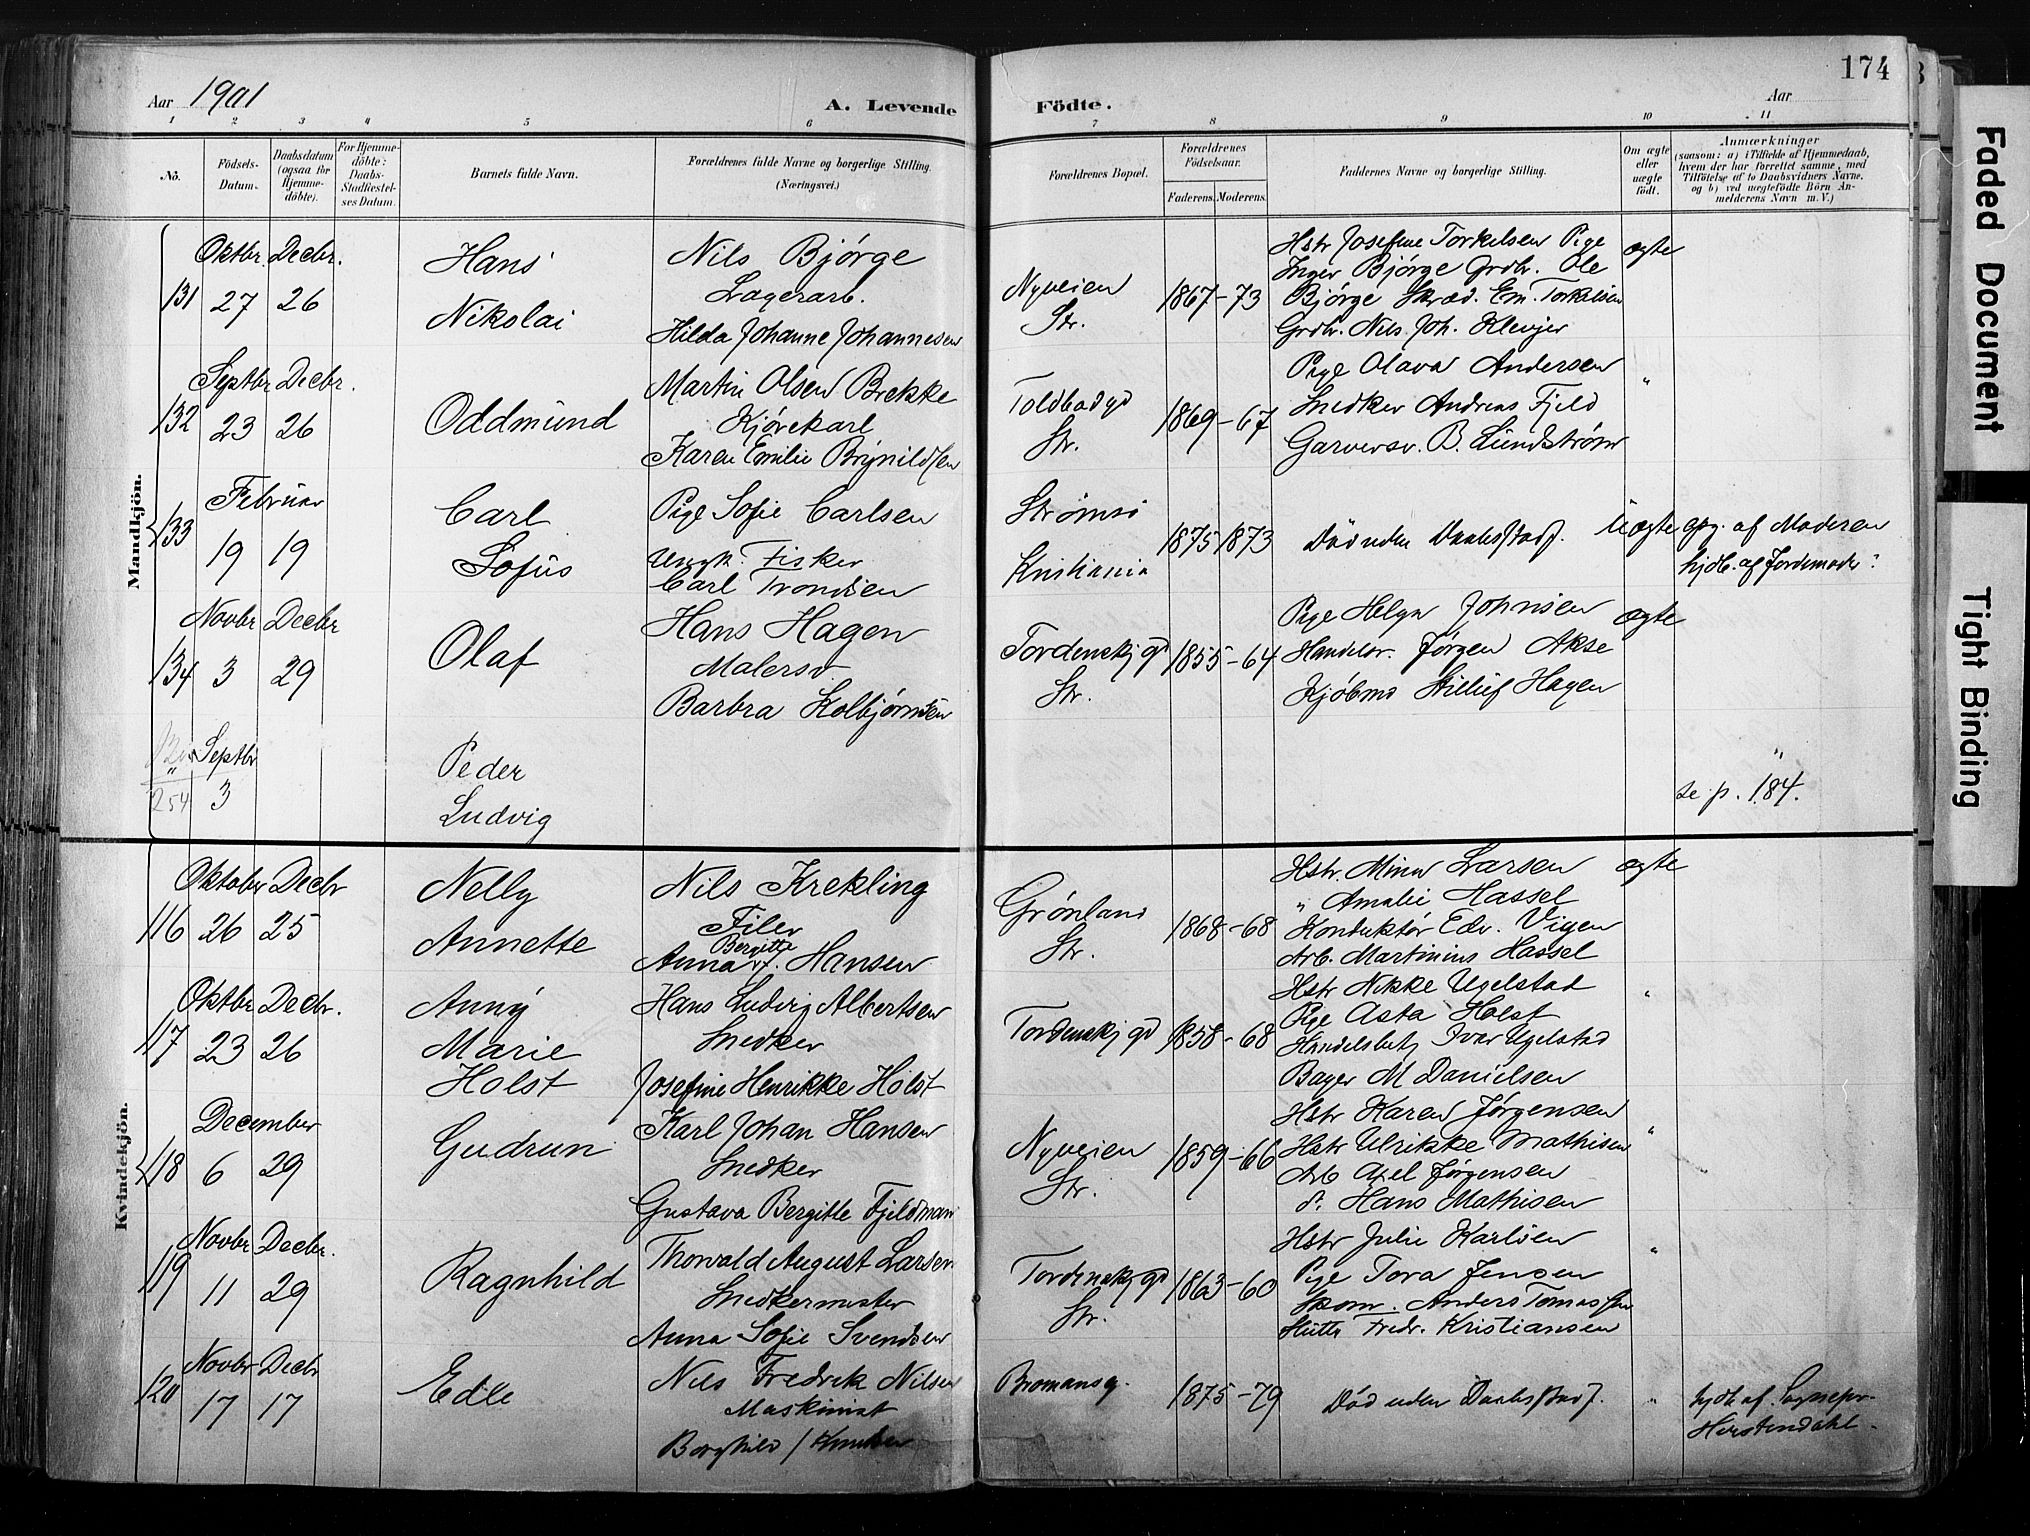 174
Aar 1901
A. Levende Födte.
Aar
1 2 3 4 5 6 7 8 9 10 11
No.
Födsels-Datum.
Daabsdatum (ogsaa for Hjemmedöbte).
For Hjemmedöbte: Daabs-Stadfæstelses Datum.
Barnets fulde Navn.
Forældrenes fulde Navne og borgerlige Stilling. (Næringsvei.)
Forældrenes Bopæl.
Forældrenes Födselsaar.
Faderens. Moderens.
Faddernes Navne og borgerlige Stilling.
Om ægte eller uægte födt.
Anmærkninger (saasom: a) i Tilfælde af Hjemmedaab, hvem der har forrettet samme, med Tilföielse af to Daabsvidners Navne, og b) ved uægtefödte Börn Anmelderens Navn m. V.)
Mandkjön.
131
Oktbr. 27
Decbr. 26
Hans
Nikolai
Nils Bjørge
Lagerarb.
Hilda Johanne Johannesen
Nyveien
Str.
1867-73
Hstr Josefine Torkelsen Pige
Inger Bjørge Grdbr. Ole
Bjørge Skræd. Em. Torkelsen
Grdbr. Nils Joh. Klevjer
ægte
132
Septbr 23
Decbr. 26
Oddmund
Martin Olsen Brekke
Kjørekarl
Karen Emilie Brynildsen
Toldbodgd
Str.
1869-67
Pige Olava Andersen
Snedker Andreas Fjeld
Garversv. B. Lundstrøm
"
133
Februar
19 19
Carl
Sofus
Pige Sofie Carlsen
Ungk. Fisker
Carl Trondsen
Strømsø
Kristiania
1875 1873
Død uden Daabsstadf.
uægte
opg. af Moderen
hjdb. af Jordemoder
134
Novbr 3
Decbr 29
Olaf
Hans Hagen
Malersv.
Barbra Kolbjørnsen
Tordenskj gd
Str.
1855-64
Pige Helga Johnsen
Handelsbr. Jørgen Akse
Kjøbmd Hagen
ægte
"
254
Septbr
3
Peder
Ludvig
"
se p. 184.
Kvindekjön.
116
Oktober 26
Decbr 25
Nelly
Annette
Nils Krekling
Filer
Bergitte
Anna v. Hansen
Grønland
Str.
1868-68
Hstr. Mina Larsen
" Amalie Hassel
Konduktør Edv. Vigen
Arb. Martinius Hassel
ægte
117
Oktbr 23
Decbr. 26
Anny
Marie
Holst
Hans Ludvig Albertsen
Snedker
Josefine Henrikke Holst
Tordenskj gd
1858-68
Hstr Nikke Ugelstad
Pige Asta Holst
Handelsbetj Ivar Ugelstad
Bager M Danielsen
"
118
December
6 29
Gudrun
Karl Johan Hansen
Snedker
Gustava Bergitte Fjeldmann
Nyveien
Str.
1859-66
Hstr Karen Jørgensen
Hstr Ulrikke Mathisen
Arb Axel Jørgensen
d. Hans Mathisen
"
119
Novbr 11
Decbr. 29
Ragnhild
Thorvald August Larsen
Snedkermester
Anna Sofie Svendsen
Tordenskj gd
Str.
1863-60
Hstr Julie Karlsen
Pige Tora Jensen
Skom. Anders Tomassen
Fredr. Kristiansen
"
120
Novbr 17
Decbr 17
Edle
Nils Fredrik Nilsen
Maskinist
Borghild Knudsen
Bromansg.
1875-79
Død uden Daabsstadf.
"
hjdb. af Sognepr.
Faded Document
Tight Binding